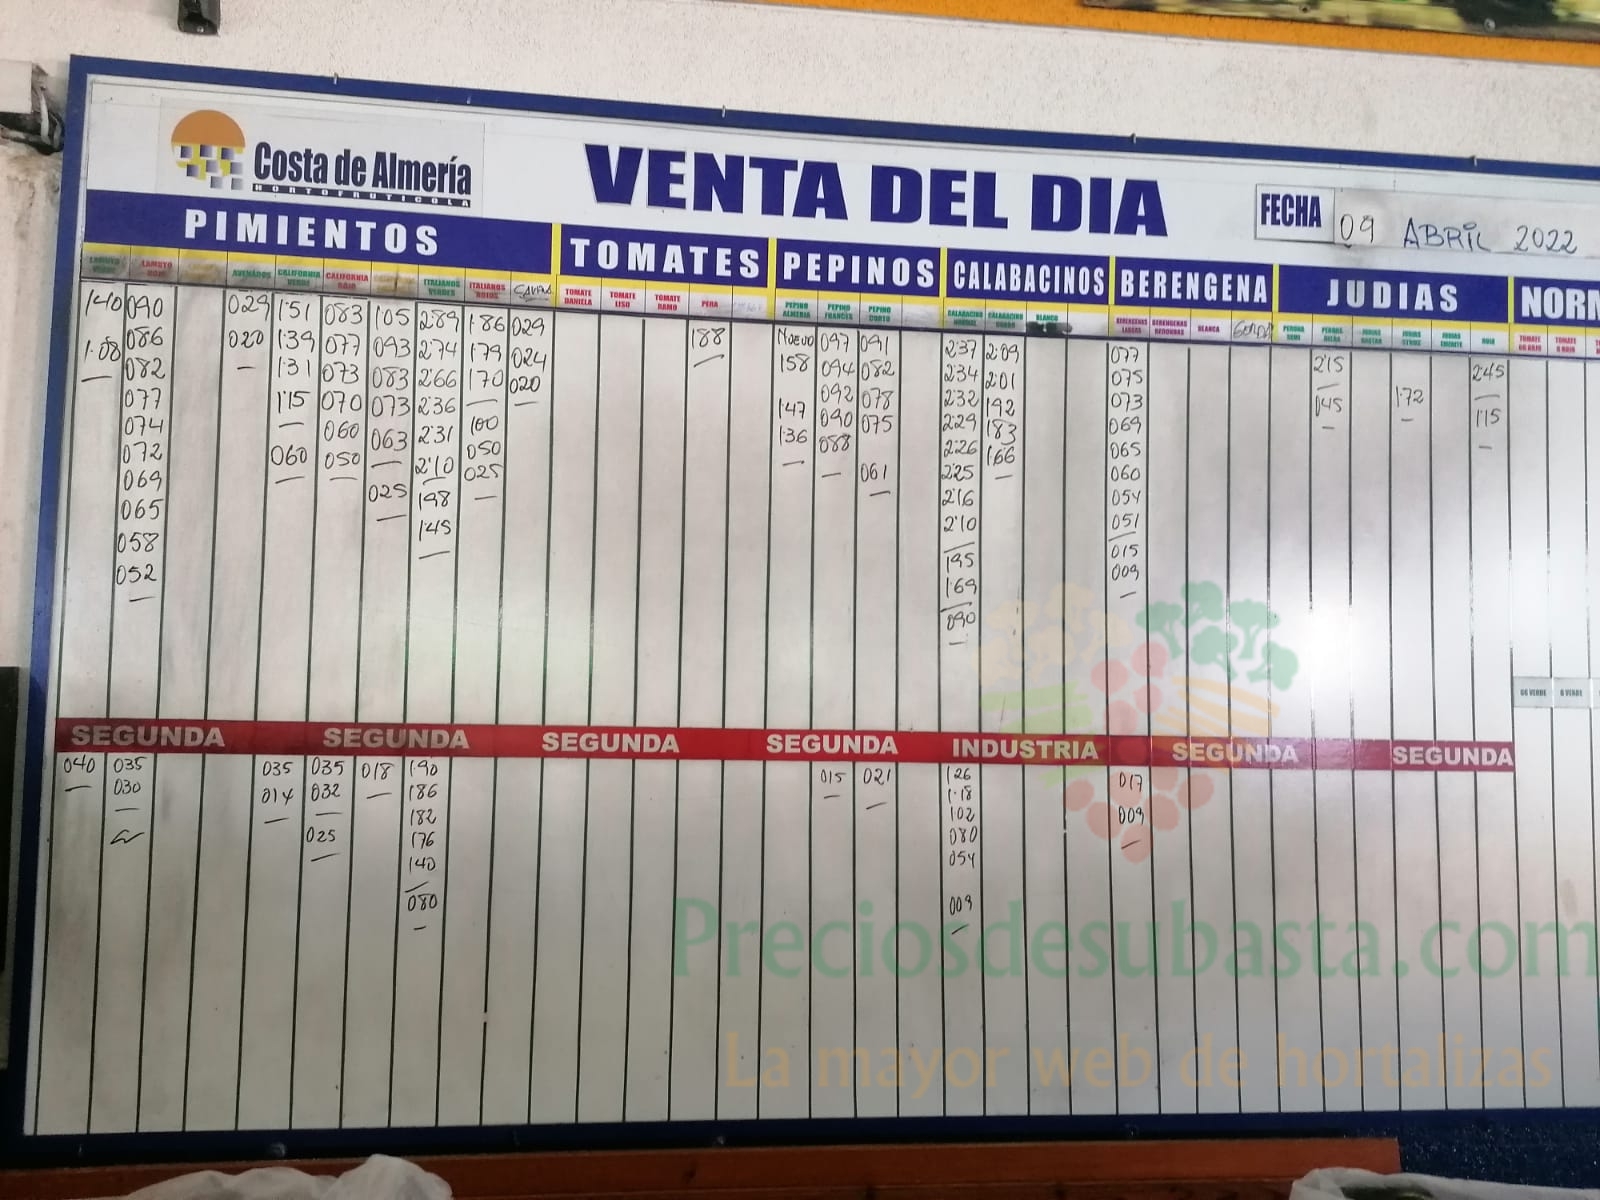 Costa de Almería
HORTOFRUTICOLA
VENTA DEL DIA
FECHA 09 ABRIL 2022
PIMIENTOS TOMATES PEPINOS CALABACINOS BERENGENA JUDIAS NORM
LAMUYO VERDE LAMUYO ROJO AVENADOS CALIFORNIA VERDE CALIFORNIA ROJO ITALIANOS VERDES ITALIANOS ROJOS TOMATE DANIELA TOMATE LISO TOMATE RAMO PERA PEPINO ALMERIA PEPINO FRANCES PEPINO CORTO BLANCO BERENGENAS LARGAS BERENGENAS REDONDAS BLANCA GORDA
140 090 029 1'51 083 105 2'89 186 029 188 Nuevo 097 091 2'37 2'09 077 2'15 2'45
1'08 086 020 1'39 077 093 2'74 179 024 158 094 082 2'34 2'01 075 045 1'72 1'15
082 1'31 073 083 2'66 170 020 147 092 078 2'32 192 073
077 1'15 070 073 2'36 100 136 090 075 2'29 183 069
074 060 060 063 2'31 050 088 061 2'26 166 065
072 050 025 2'10 025 2'25 060
069 198 2'16 054
065 1'45 2'10 051
058 195 015
052 1'69 009
090
SEGUNDA SEGUNDA SEGUNDA SEGUNDA INDUSTRIA SEGUNDA SEGUNDA
GG VERDE G VERDE
040 035 035 035 018 190 015 021 126 017
030 014 032 186 1'18 009
025 182 102
176 080
140 054
080 009
Preciosdesubasta.com
La mayor web de hortalizas